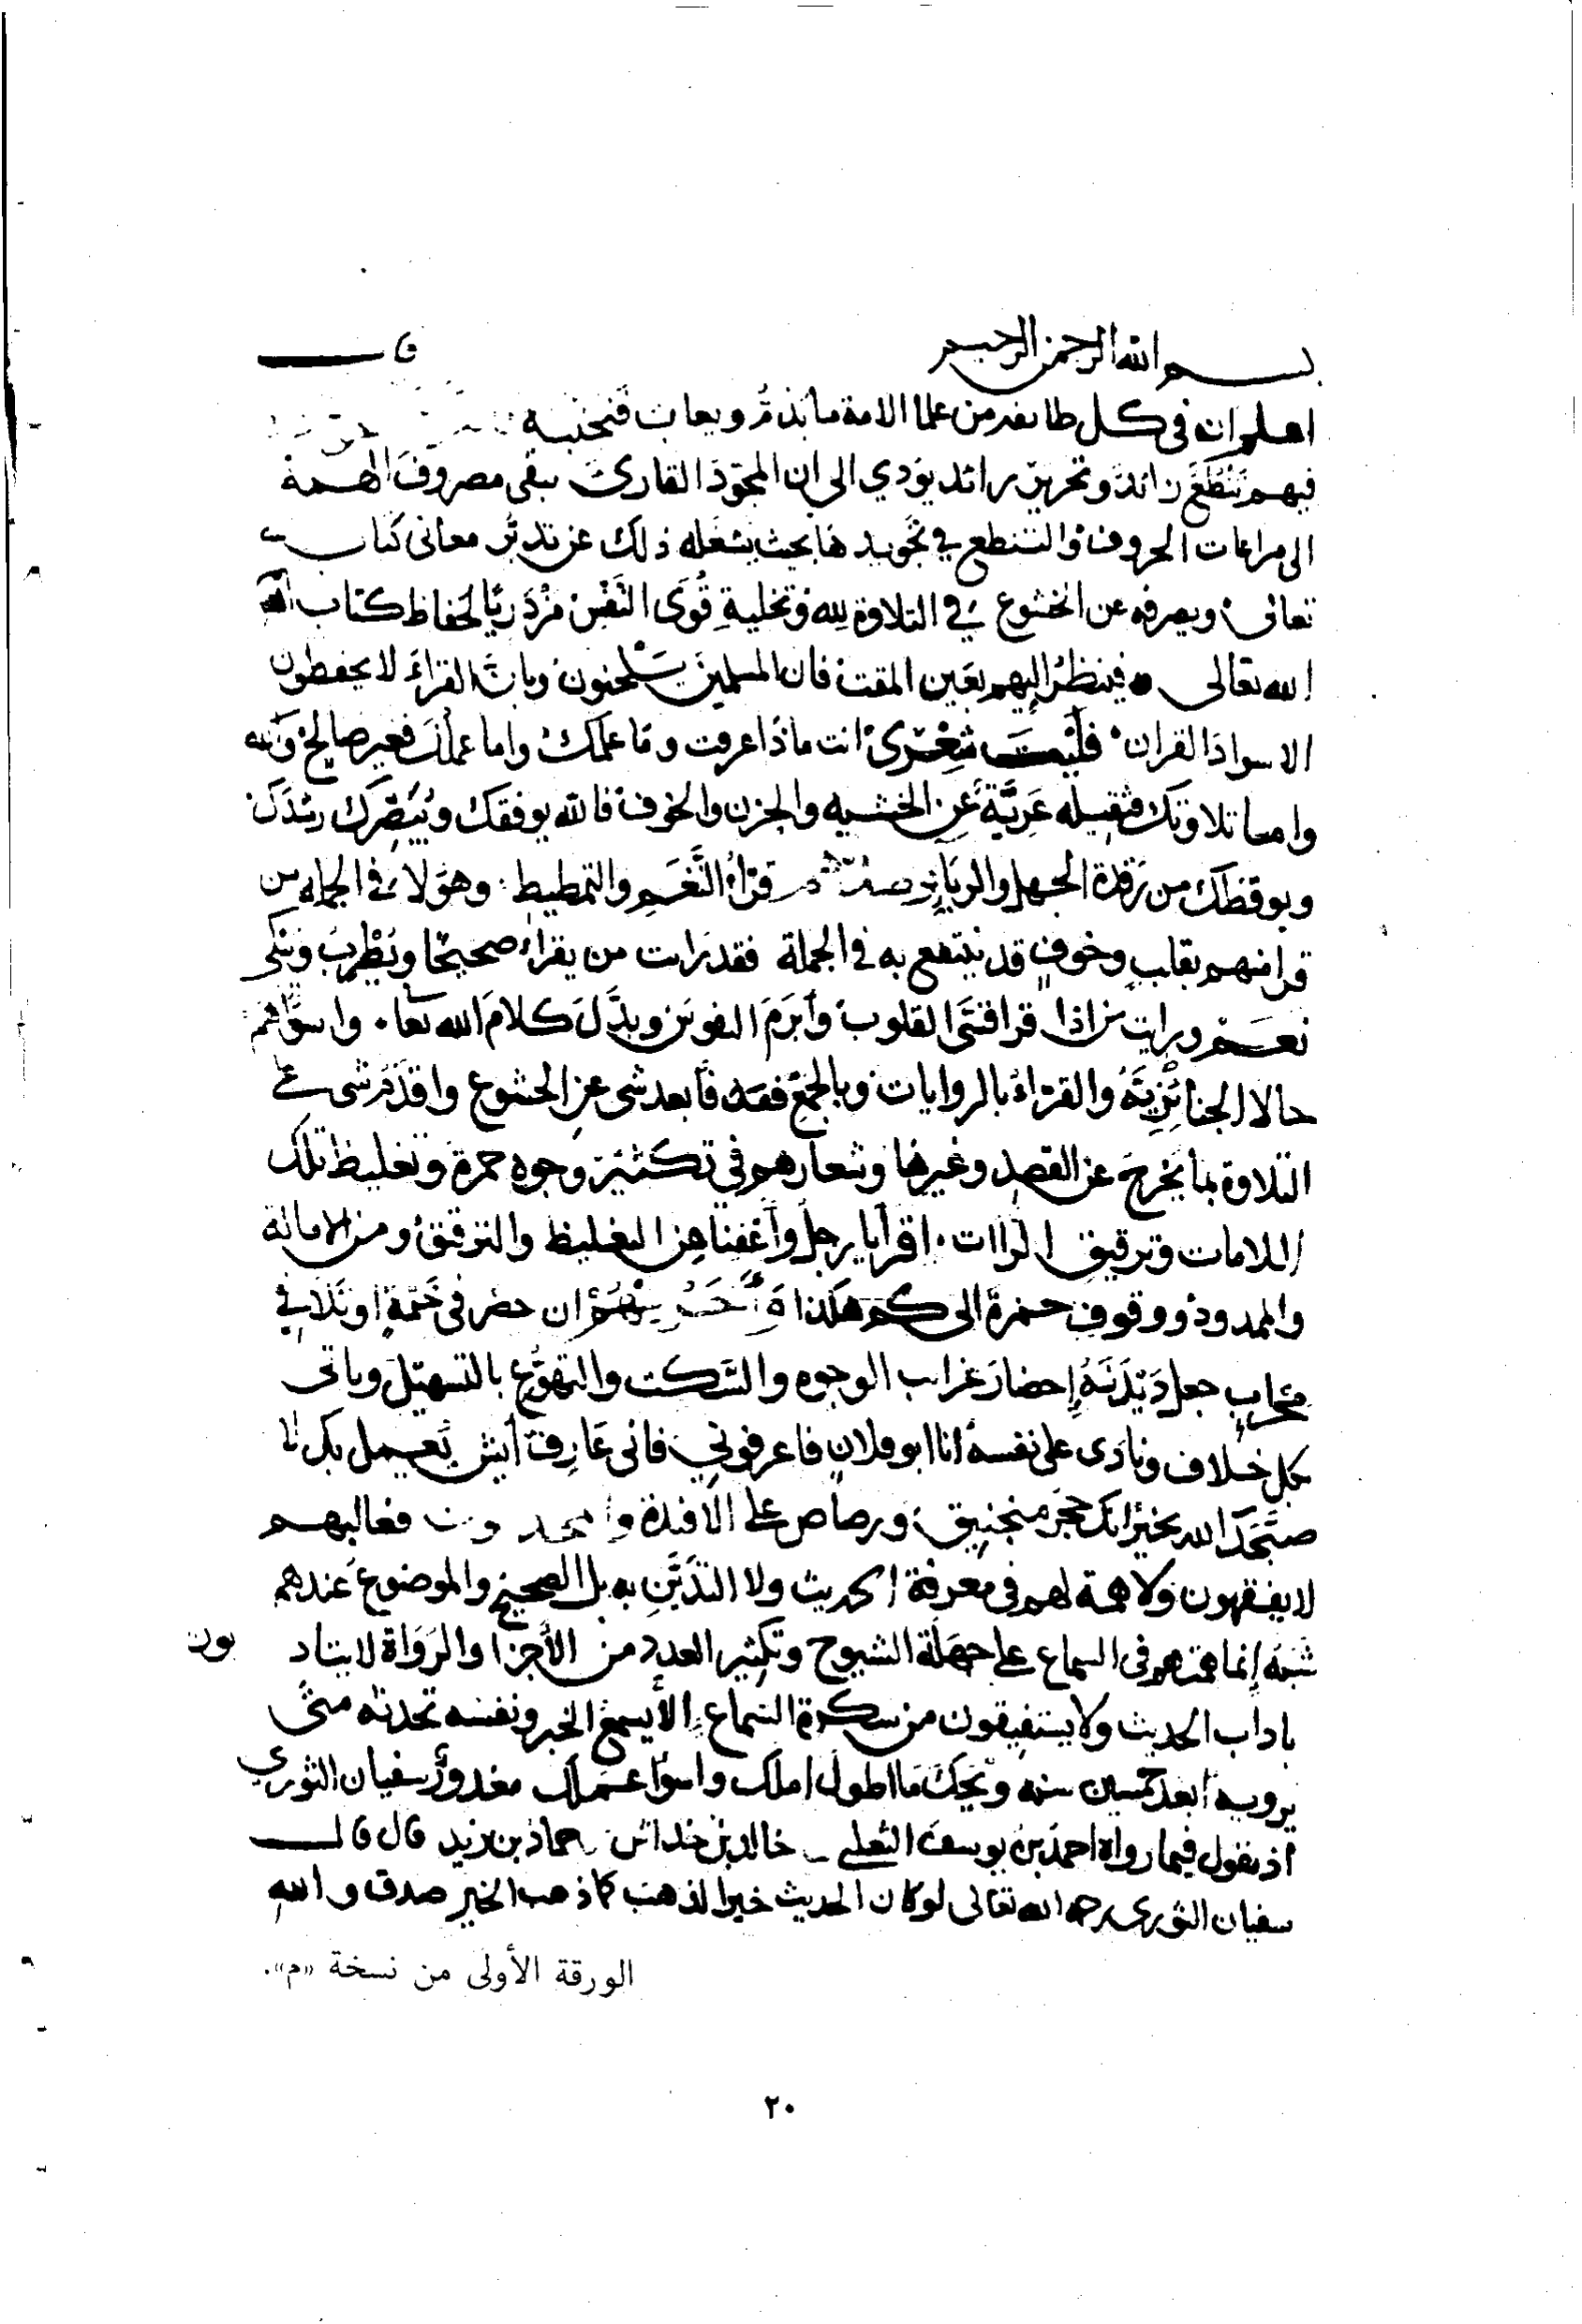 بسم الله الرحمن الرحيم قال
اعلم ان في كل طايفه من علما الامة ما يذم ويعاب فتجنبه
فيهم تنطع زائد وتحرير زائد يؤدي الى ان المجود القارئ يبقى مصروف الهمة
الى مراعات الحروف والتنطع في تجويدها بحيث يشغله ذلك عن تدبر معاني كتاب
تعالى ويصرفه عن الخشوع في التلاوة لله وتخلية قوى النفس مزدريا لحفاظ كتاب الله
الله تعالى فينظر اليهم بعين المقت فان المسلمين يلحنون وبان القراء لا يحفظون
الا سواذ القران فليت شعرى انت ماذا عرفت وما عملك واما عملك فغير صالح والله
واما تلاوتك فثقيله عرية عن الخشيه والحزن والخوف فالله يوفقك ويبصرك رشدك
ويوقظك من رقدة الجهل والرياء قراء النغم والتمطيط وهولاء في الجمله من
قرا منهم بقلب وخوف قد ينتفع به في الجملة فقد رايت من يقراء صحيحا ويطرب ويبكى
نعم ورايت من اذا قرا قسى القلوب وابرم النفوس وبدل كلام الله تعا واسوأهم
حالا الجنائزية والقراء بالروايات وبالجمع فهم فابعد شى عن الخشوع واقدم شى على
التلاوة بما يخرج عن القصد وغيرها وشعارهم في تكثير وجوه حمزة وتغليظ تلك
اللامات وترقيق الراات اقرا يا رجل واعفنا من التغليظ والترقيق ومن الامالة
والمدود ووقوف حمزة الى كم هكذا ان حضر في ختمة او تلا في
محراب جعل ديدنه إحضار غراب الوجوه والسكت والتهوع بالتسهيل وياتى
بكل خلاف ونادى على نفسه انا ابو فلان فاعرفوني فانى عارف أيش يعمل بك لا
صبحك الله بخير انك حجر منجنيق ورصاص على الافئدة فغالبهم
لا يفقهون ولا همة لهم في معرفة الحديث ولا التدين به بل الصحيح والموضوع عندهم
شبه إنما همتهم في السماع على جهلة الشيوخ وتكثير العدد من الأجزا والرواة لا يتاد بون
باداب الحديث ولا يستفيقون من سكرة السماع الأيسمع الخبر ونفسه تحدثه متى
يرويه أبعد خمسين سنه ويحك ما اطول املك واسوأ عملك معذور سفيان الثوري
اذ يقول فيما رواه احمد بن يوسف التغلبى خالد بن خداش حماد بن زيد قال قال
سفيان الثوري رحمه الله تعالى لو كان الحديث خيرا لذهب كما ذهب الخير صدق والله
الورقة الأولى من نسخة «م».
٢٠